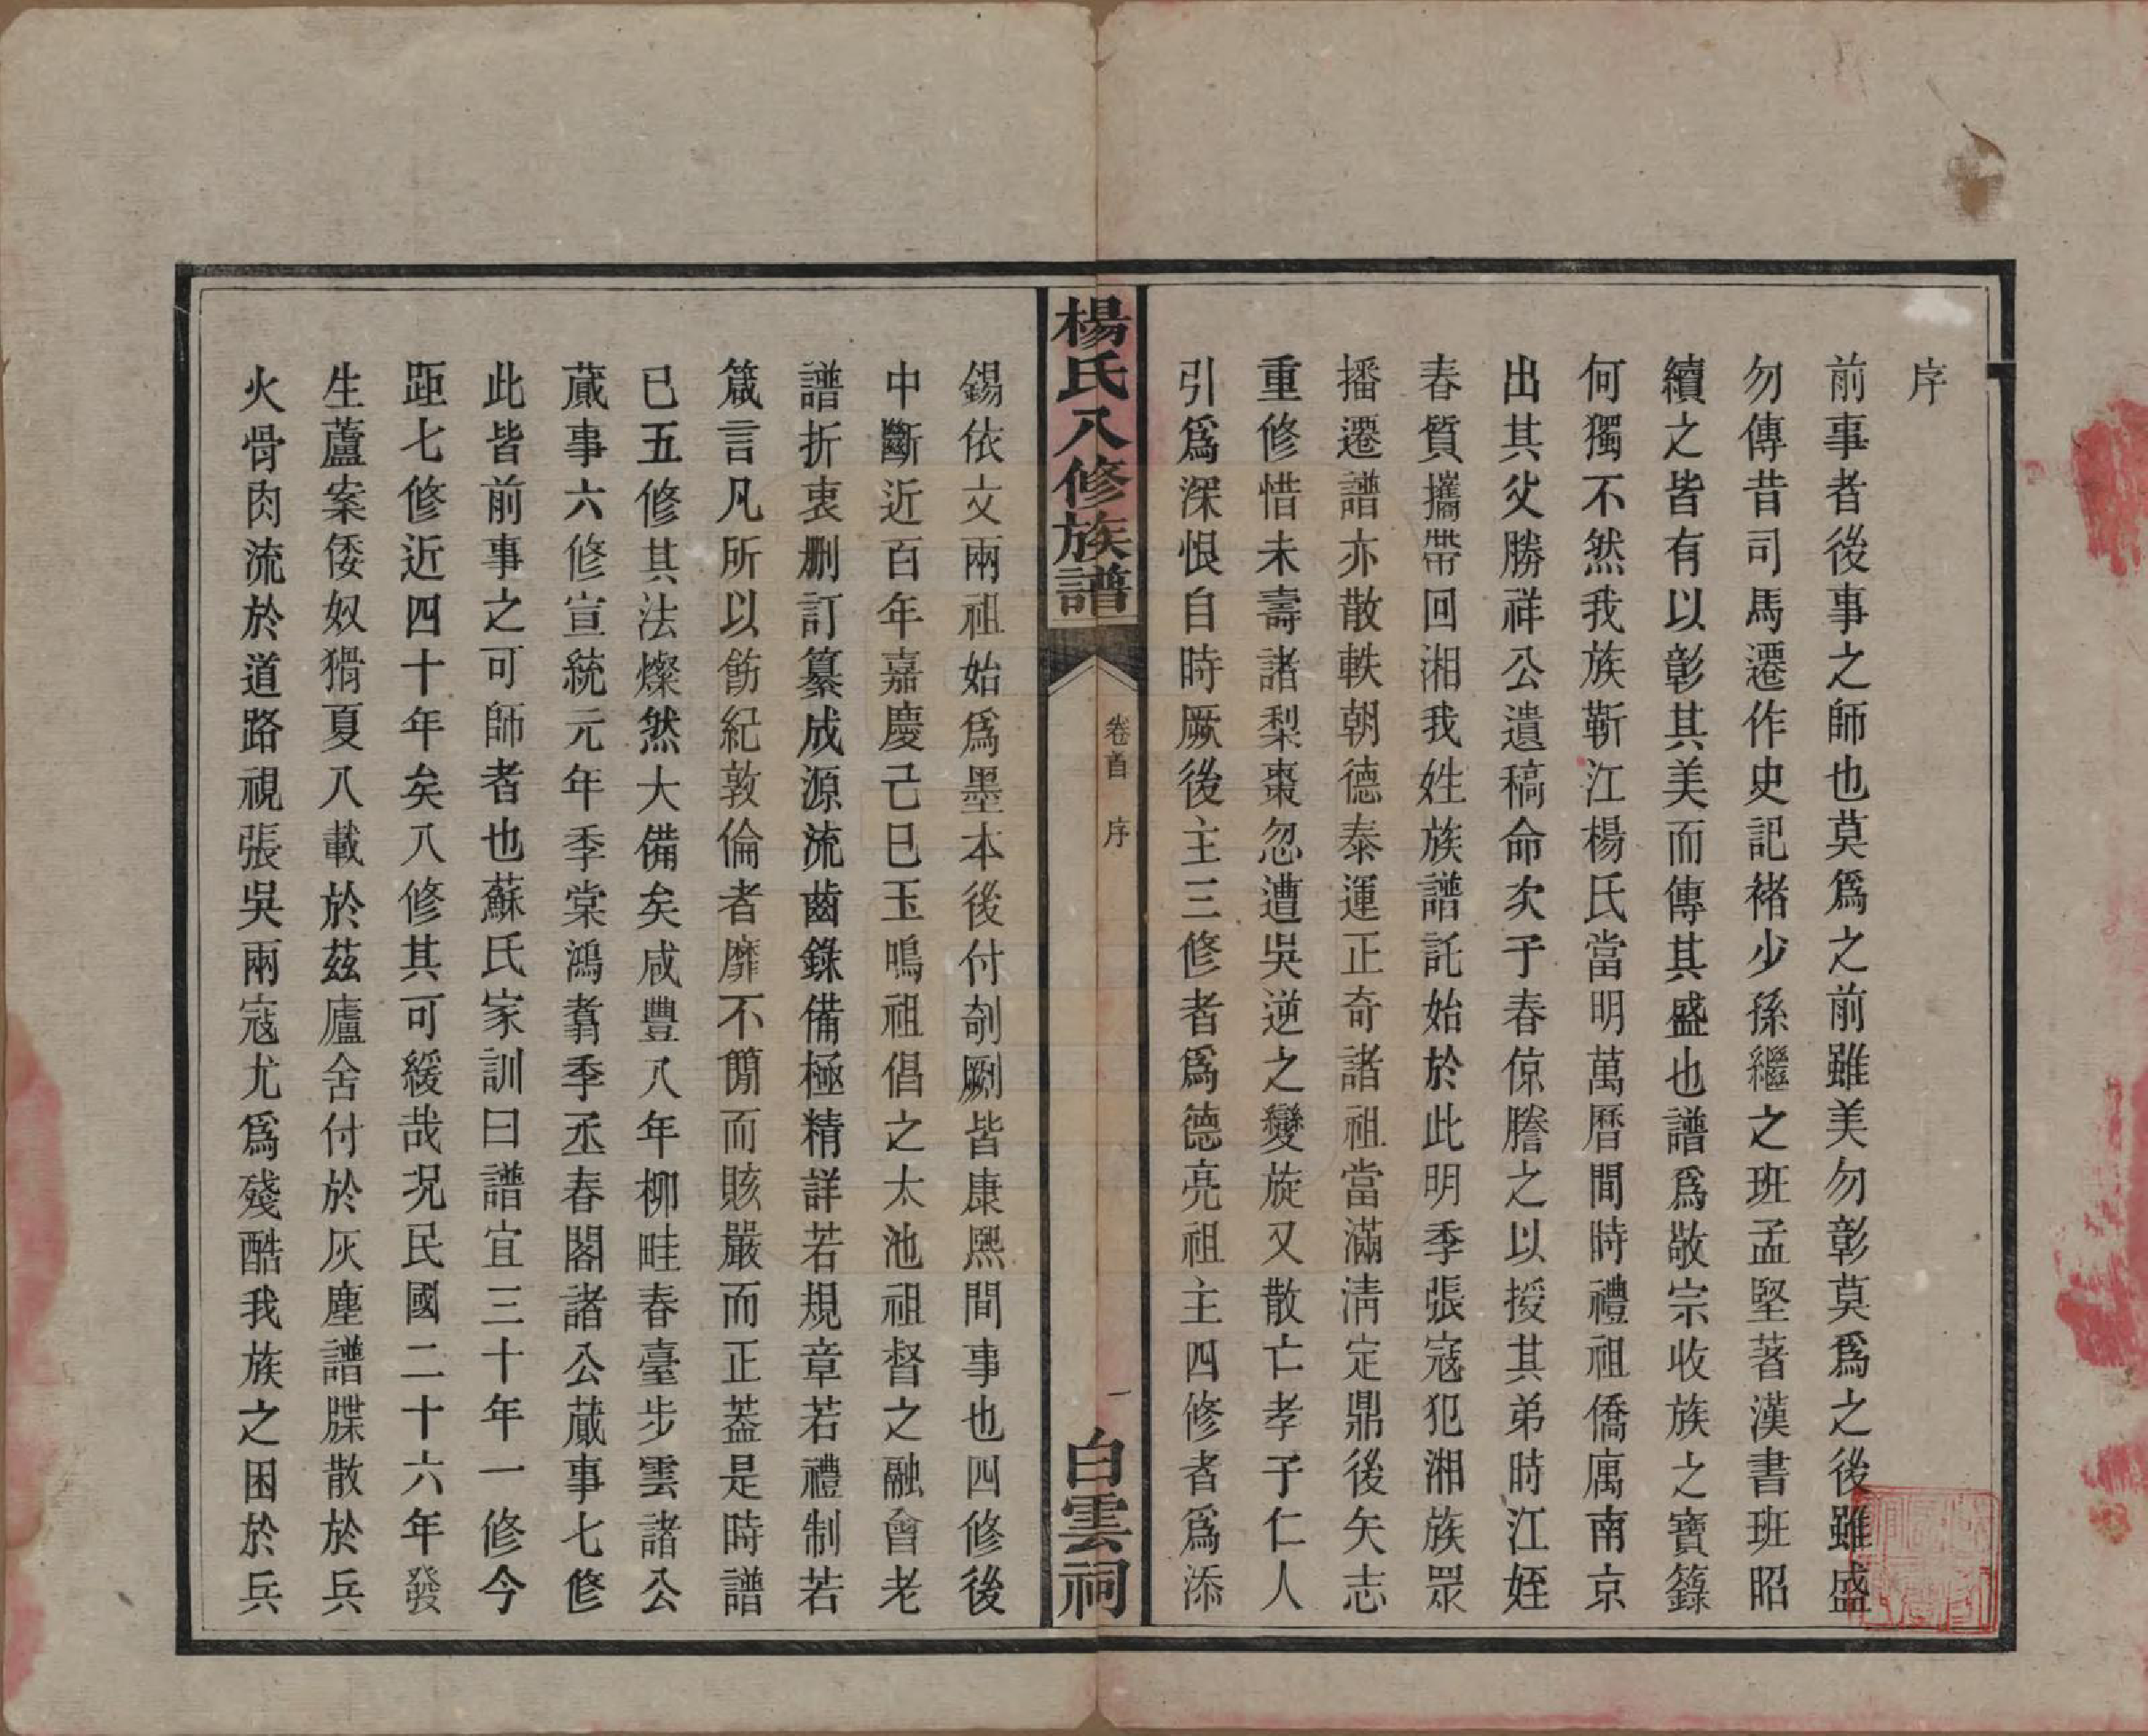 序
前事者後事之師也莫爲之前雖美勿彰莫爲之後雖盛
勿傳昔司馬遷作史記褚少孫繼之班孟堅著漢書班昭
續之皆有以彰其美而傳其盛也譜爲敬宗收族之寶籙
何獨不然我族靳江楊氏當明萬曆間時禮祖僑厲南京
出其父勝祥公遺稿命次子春倞謄之以授其弟時江姪
春質攜帶回湘我姓族譜託始於此明季張寇犯湘族眾
播遷譜亦散軼朝德泰運正奇諸祖當滿淸定鼎後矢志
重修惜未壽諸梨棗忽遭吳逆之變旋又散亡孝子仁人
引爲深恨自時厥後主三修者爲德亮祖主四修者爲添
楊氏八修族譜
卷首 序
一
白雲祠
錫依文兩祖始爲墨本後付剞劂皆康熙間事也四修後
中斷近百年嘉慶己巳玉鳴祖倡之太池祖督之融會老
譜折衷删訂纂成源流齒錄備極精詳若規章若禮制若
箴言凡所以飭紀敦倫者靡不簡而賅嚴而正葢是時譜
已五修其法燦然大備矣咸豐八年柳畦春臺步雲諸公
蕆事六修宣統元年季棠鴻翥季丞春閣諸公蕆事七修
此皆前事之可師者也蘇氏家訓曰譜宜三十年一修今
距七修近四十年矣八修其可緩哉況民國二十六年發
生蘆案倭奴猾夏八載於茲廬舍付於灰塵譜牒散於兵
火骨肉流於道路視張吳兩寇尤爲殘酷我族之困於兵